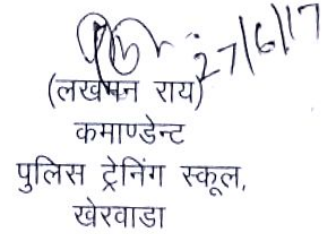 27/6/17
(लखमन राय)
कमाण्डेन्ट
पुलिस ट्रेनिंग स्कूल,
खेरवाडा